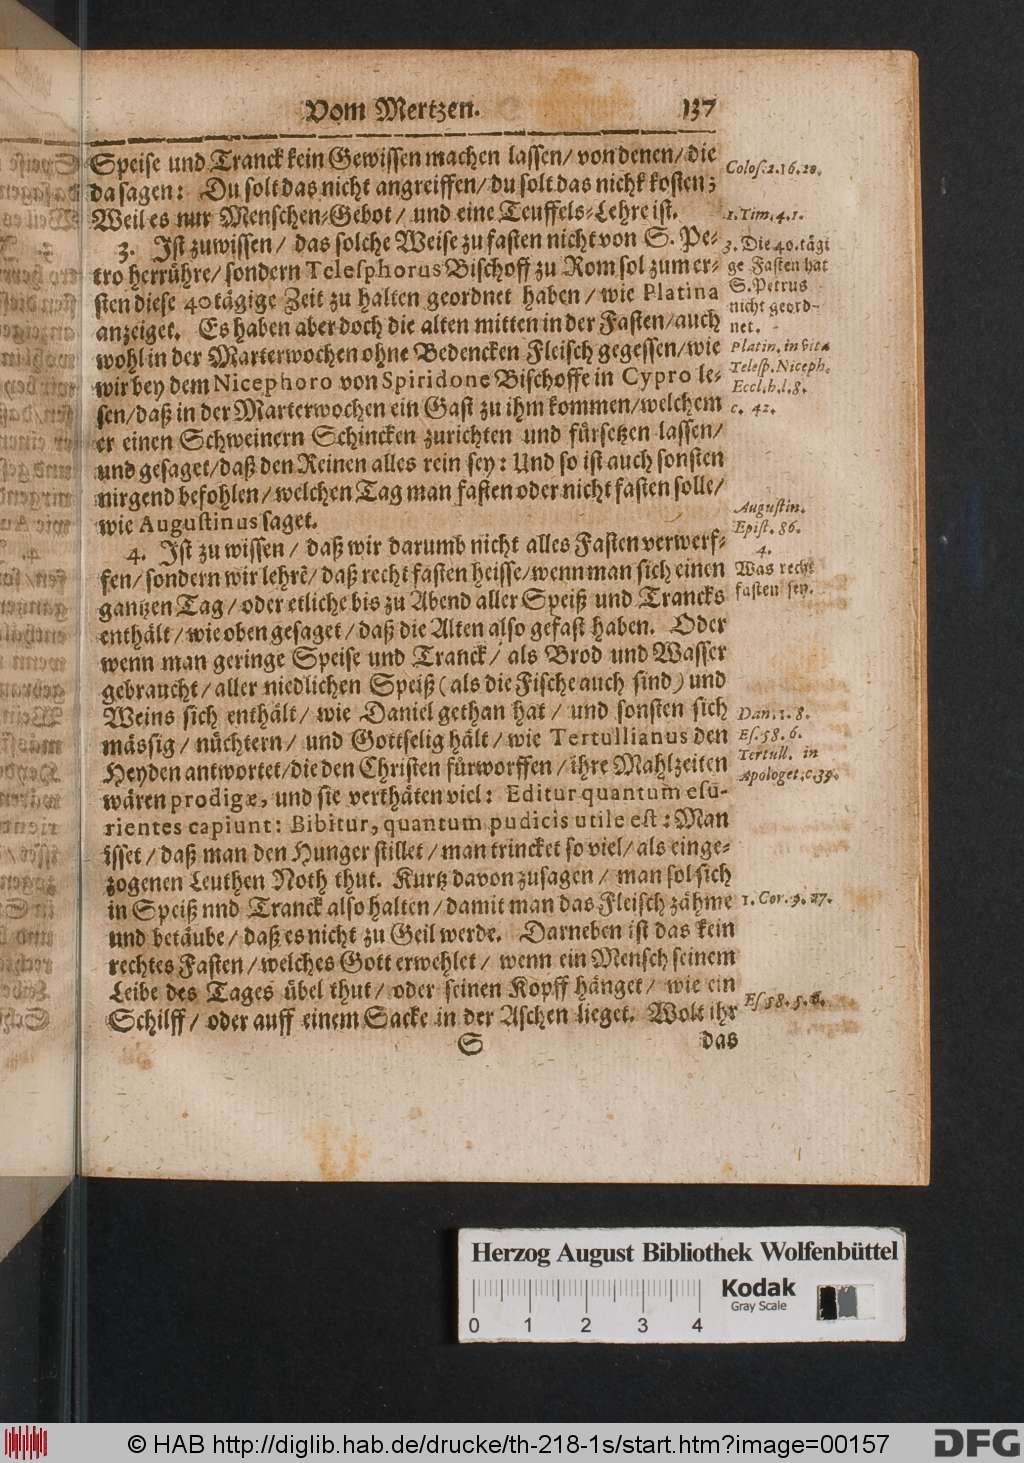 Vom Mertzen. 137
Speise und Tranck kein Gewissen machen lassen/ von denen/ die
da sagen: Du solt das nicht angreiffen/ du solt das nichk kosten;
Weil es nur Menschen-Gebot/ und eine Teuffels-Lehre ist.
3. Ist zuwissen/ das solche Weise zu fasten nicht von S. Pe-
tro herrühre/ sondern Telesphorus Bischoff zu Rom sol zum er-
sten diese 40tägige Zeit zu halten geordnet haben/ wie Platina
anzeiget. Es haben aber doch die alten mitten in der Fasten/ auch
wohl in der Marterwochen ohne Bedencken Fleisch gegessen/ wie
wir bey dem Nicephoro von Spiridone Bischoffe in Cypro le-
sen/ daß in der Marterwochen ein Gast zu ihm kommen/ welchem
er einen Schweinern Schincken zurichten und fürsetzen lassen/
und gesaget/ daß den Reinen alles rein sey: Und so ist auch sonsten
nirgend befohlen/ welchen Tag man fasten oder nicht fasten solle/
wie Augustinus saget.
4. Ist zu wissen/ daß wir darumb nicht alles Fasten verwerf-
fen/ sondern wir lehrẽ/ daß recht fasten heisse/ wenn man sich einen
gantzen Tag/ oder etliche bis zu Abend aller Speiß und Trancks
enthält/ wie oben gesaget/ daß die Alten also gefast haben. Oder
wenn man geringe Speise und Tranck/ als Brod und Wasser
gebraucht/ aller niedlichen Speiß (als die Fische auch sind) und
Weins sich enthält/ wie Daniel gethan hat/ und sonsten sich
mässig/ nüchtern/ und Gottselig hält/ wie Tertullianus den
Heyden antwortet/ die den Christen fürworffen/ ihre Mahlzeiten
wären prodigæ, und sie verthäten viel: Editur quantum esu-
rientes capiunt: Bibitur, quantum pudicis utile est: Man
isset/ daß man den Hunger stillet/ man trincket so viel/ als einge-
zogenen Leuthen Noth thut. Kurtz davon zusagen/ man sol sich
in Speiß nnd Tranck also halten/ damit man das Fleisch zähme
und betäube/ daß es nicht zu Geil werde. Darneben ist das kein
rechtes Fasten/ welches Gott erwehlet/ wenn ein Mensch seinem
Leibe des Tages übel thut/ oder seinen Kopff hänget/ wie ein
Schilff/ oder auff einem Sacke in der Aschen lieget. Wolt ihr
S das
Colos. 2. 16. 20.
1. Tim. 4. 1.
3. Die 40. tägi
ge Fasten hat
S. Petrus
nicht geord-
net.
Platin. in vita
Telesp. Niceph.
Eccl. h. l. 8.
c. 42.
Augustin.
Epist. 86.
4.
Was recht
fasten sey.
Dan. 1. 8.
Es. 58. 6.
Tertull. in
Apologet. c. 39.
1. Cor. 9. 27.
Es. 58. 5. 6.
Herzog August Bibliothek Wolfenbüttel
Kodak
Gray Scale
0 1 2 3 4
© HAB http://diglib.hab.de/drucke/th-218-1s/start.htm?image=00157
DFG